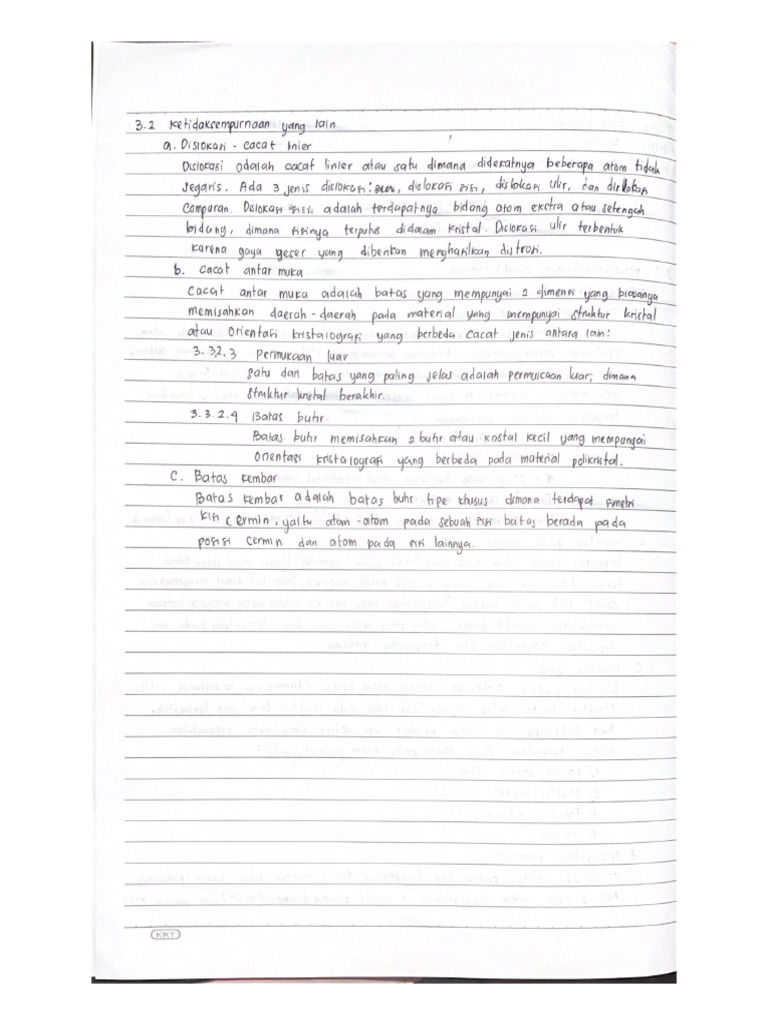 3.2 Ketidaksempurnaan yang lain
a. Dislokasi - cacat linier
Dislokasi adalah cacat linier atau satu dimana didekatnya beberapa atom tidak
segaris. Ada 3 jenis dislokasi: dislokasi sisi, dislokasi ulir, dan dislokasi
Campuran. Dislokasi sisi adalah terdapatnya bidang atom ekstra atau setengah
bidang, dimana sisinya terputus didalam kristal. Dislokasi ulir terbentuk
karena gaya geser yang diberikan menghasilkan distrosi.
b. Cacat antar muka
Cacat antar muka adalah batas yang mempunyai 2 dimensi yang biasanya
memisahkan daerah-daerah pada material yang mempunyai struktur kristal
atau Orientasi kristalografi yang berbeda Cacat jenis antara lain:
3.3.2.3 Permukaan luar
Satu dan batas yang paling jelas adalah permukaan luar, dimana
struktur kristal berakhir.
3.3.2.4 Batas buhr
Batas buhr memisahkan 2 buhr atau kristal kecil yang mempunyai
Orientasi kristalografi yang berbeda pada material polikristal.
C. Batas Kembar
Batas Kembar adalah batas buhr tipe khusus dimana terdapat simetri
kisi cermin, yaitu atom-atom pada sebuah sisi batas berada pada
posisi cermin dan atom pada sisi lainnya.
KKY